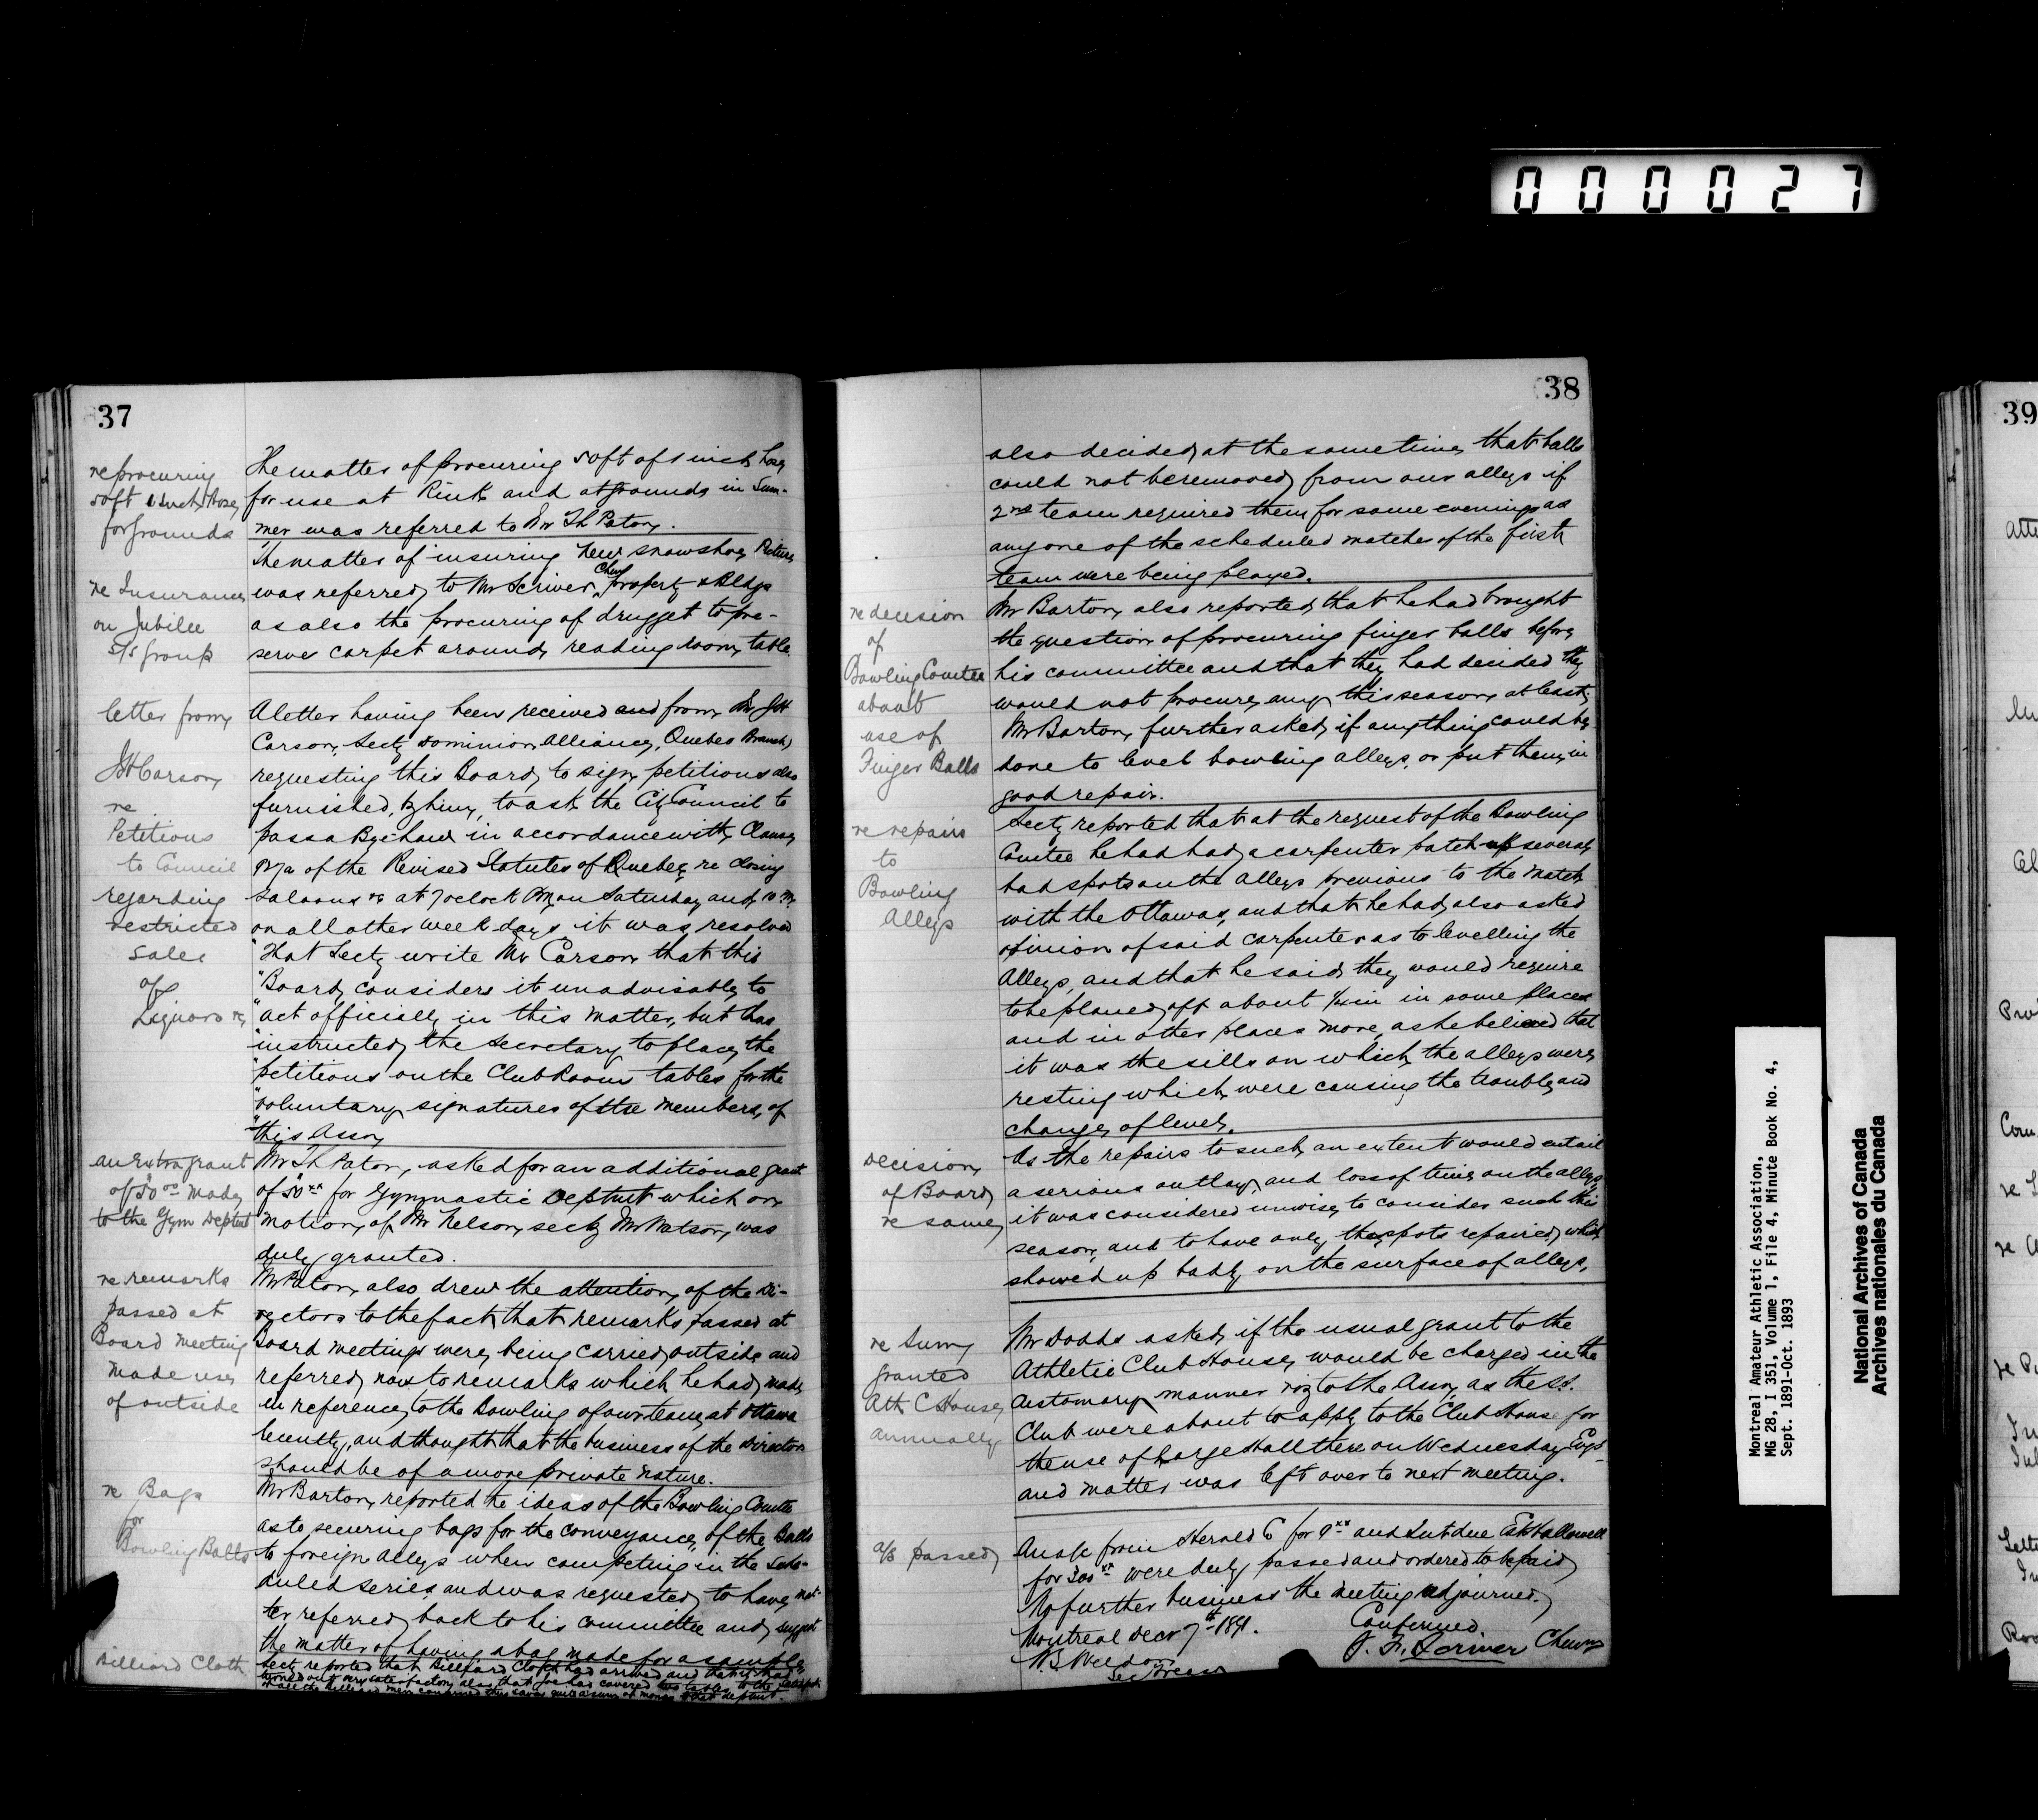 000027
37
re procuring
50ft 1 inch Hose
for grounds
The matter of procuring 50ft of 1 inch hose
for use at Rink and at grounds in Sum-
mer was referred to Mr Th Paton.
re Insurance
on Jubilee
S/S group
The matter of insuring new snowshoe Picture
was referred to Mr Scriver, Chmn Property & Bldgs
as also the procuring of drugget to pre-
serve carpet around reading room table.
letter from
JH Carson
re
Petitions
to Council
regarding
restricted
sale
of
Liquors &c
A letter having been received and from Mr JH
Carson, Secty Dominion Alliance, Quebec Branch
requesting this Board to sign petitions also
furnished by him, to ask the City Council to
pass a Bye Law in accordance with Clause
of the Revised Statutes of Quebec re closing
Saloons &c at 7 oclock PM on Saturday and 10 PM
on all other week days it was resolved
"That Secty write Mr Carson that this
"Board considers it unadvisable to
"act officially in this matter, but has
"instructed the Secretary to place the
"petitions on the Club Room tables for the
"voluntary signatures of the members of
"this Assn
an Extra grant
of 50 00 made
to the Gym Deptmt
Mr Th Paton, asked for an additional grant
of 50 xx for Gymnastic Deptmt which on
motion of Mr Nelson, secty Mr Watson, was
duly granted.
re remarks
passed at
Board Meeting
made use
of outside
Mr Paton also drew the attention of the Di-
rectors to the fact that remarks passed at
Board meetings were being carried outside and
referred now to remarks which he had made
in reference to the Bowling of our team at Ottawa
lecently, and thought that the business of the Directors
should be of a more private nature.
re Bags
for
Bowling Balls
Mr Barton reported re ideas of the Bowling Comtee
as to securing bags for the conveyance of the Balls
to foreign alleys when competing in the Sche-
duled series, and was requested to have mat-
ter referred back to his committee and suggest
the matter of having a bag made for a sample
Billiard Cloth
Secty reported that Billiard Cloth had arrived and that it had
turned out very satisfactory also that Joe had covered two tables to the satisfact.
38
also decided at the same time that balls
could not be removed from our alleys if
2nd team required them for same evening as
any one of the scheduled matches of the first
team were being played.
re decision
of
Bowling Comtee
about
use of
Finger Balls
Mr Barton also reported that he had brought
the question of procuring finger balls before
his committee and that they had decided they
would not procure any this season at least.
Mr Barton further asked if anything could be
done to level bowling alleys, or put them in
good repair.
re repairs
to
Bowling
Alleys
Secty reported that at the request of the Bowling
Comtee he had had a carpenter patch up several
bad spots on the alleys previous to the match
with the Ottawas, and that he had also asked
opinion of said carpenter as to levelling the
Alleys, and that he said they would require
to be planed off about 1/4 in in some places
and in other places more, as he believed that
it was the sills on which the alleys were
resting which were causing the trouble and
change of level.
Decision
of Board
re same
As the repairs to such an extent would entail
a serious outlay and loss of time on the alleys
it was considered unwise to consider such this
season, and to have only the spots repaired which
showed up badly on the surface of alleys.
re Sum
granted
Ath C House
annually
Mr Dodds asked if the usual grant to the
Athletic Club House would be charged in the
customary manner viz to the Assn, as the SS.
Club were about to apply to the Club House for
the use of large Hall there on Wednesday Evgs
and matter was left over to next meeting.
a/s passed
An a/c from Herald Co for 9 xx and Int due Est Hallowell
for 300 xx were duly passed and ordered to be paid
No further business the meeting adjourned.
Montreal Decr 7th 1891.
Confirmed.
Chmn
Sec Treas
39
Montreal Amateur Athletic Association,
MG 28, I 351, Volume 1, File 4, Minute Book No. 4,
Sept. 1891-Oct. 1893
National Archives of Canada
Archives nationales du Canada